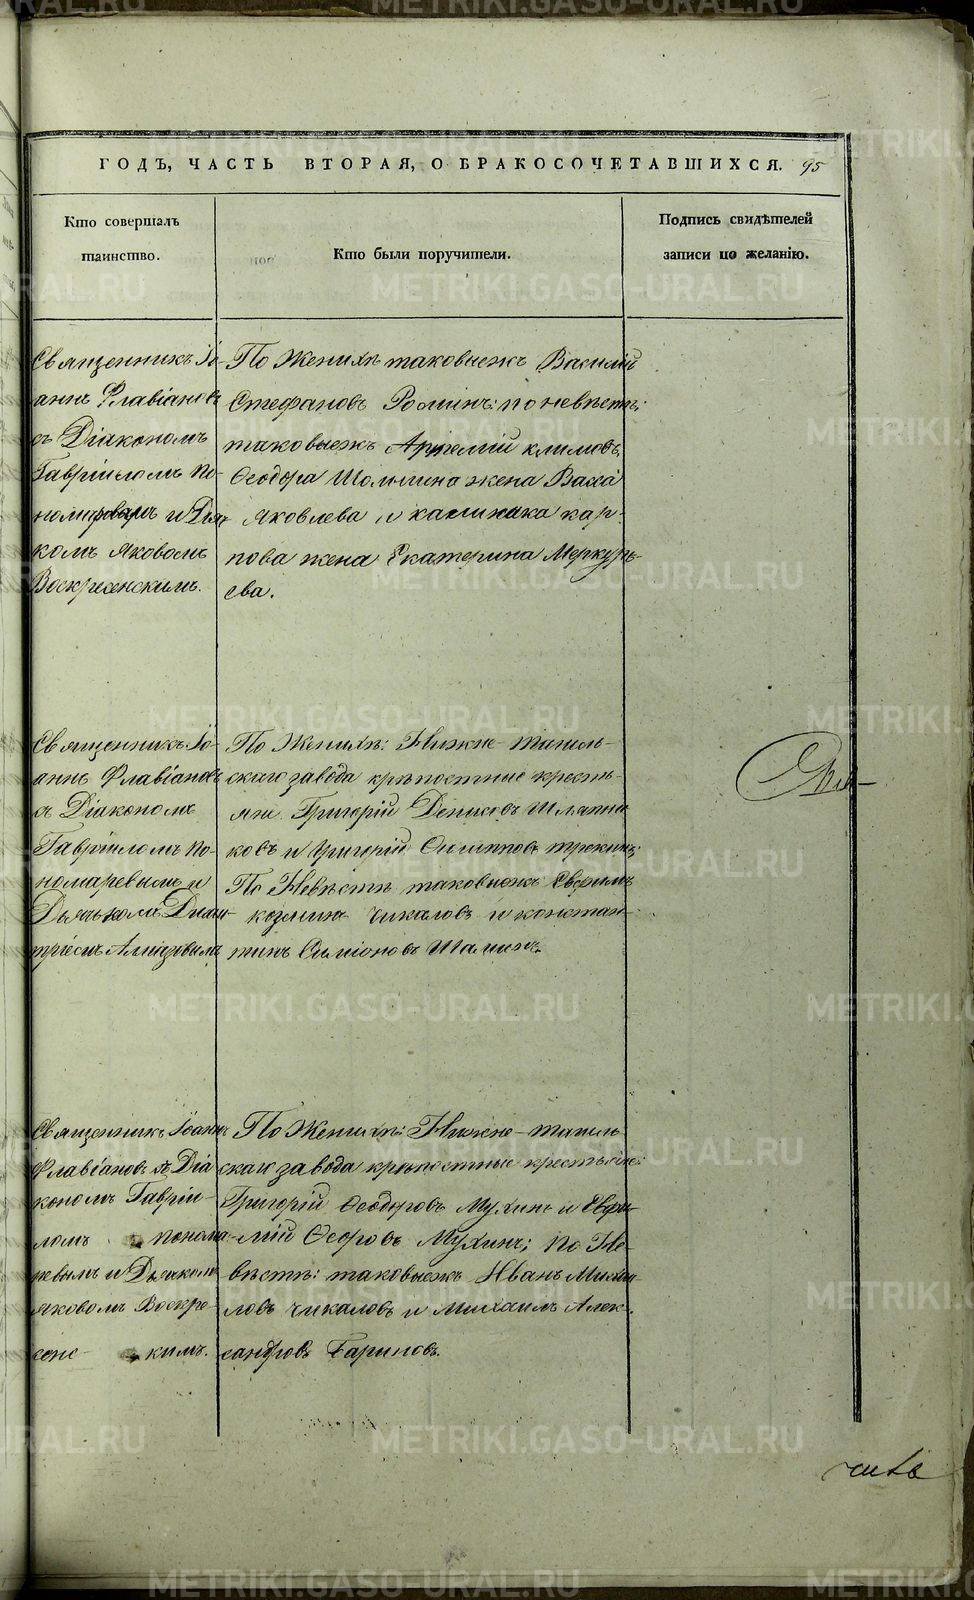 ГОДЪ, ЧАСТЬ ВТОРАЯ, О БРАКОСОЧЕТАВШИХСЯ. 95
Кто совершалъ
таинство.
Кто были поручители.
Подпись свидѣтелей
записи по желанію.
Священникъ Іо-
аннъ Флавіановъ
съ Діакономъ
Гавріиломъ По-
номаревымъ и Дья-
комъ Яковомъ
Воскресенскимъ.
По Женихѣ таковыежъ Василій
Стефановъ Роминъ: по невѣстѣ:
таковыежъ Артемій климовъ,
Ѳеодора Шомина жена Васса
Яковлева и калиника кар-
пова жена Екатерина Меркурь-
ева.
Священникъ Іо-
аннъ Флавіановъ
съ Діакономъ
Гавріиломъ По-
номаревымъ и
Дьячкомъ Дими-
тріемъ
По Женихѣ: Нижне-тагиль-
скаго завода крѣпостные кресть-
яне Григорій Денисовъ Шляпни-
ковъ и Григорій Филиповъ
По Невѣстѣ таковыежъ Ефимъ
козминъ Чикаловъ и констан-
тинъ Симіоновъ Шаминъ.
Священникъ Іоаннъ
Флавіановъ съ Діа
кономъ Гавріи-
ломъ понома-
ревымъ и Дьячкомъ
яковомъ Воскре-
сенс- кимъ.
По Женихѣ: Нижне-тагиль
скаго завода крѣпостные крестьяне:
Григорій Ѳеодоровъ Мухинъ и Евфи-
мій Ѳедоровъ Мухинъ; по Не-
вѣстѣ: таковыежъ Иванъ Михаи
ловъ Чикаловъ и Михаилъ Алек-
сандровъ Бариновъ.
METRIKI.GASO-URAL.RU